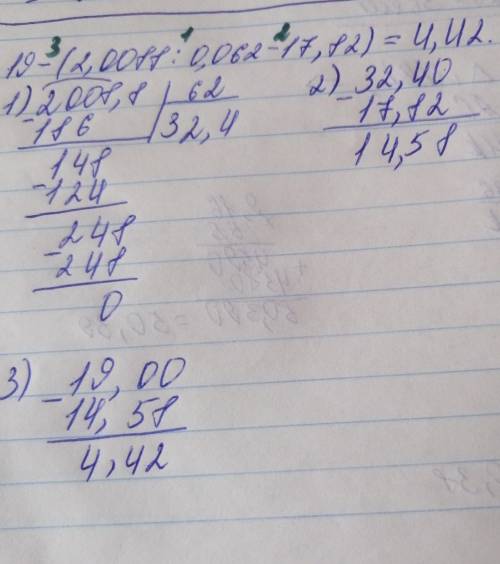 3 1 2
19-(2,0088:0,062-17,82)=4,42.
1) 2008,8 | 62
-186 | 32,4
148
-124
-248
-248
0
2) 32,40
-17,82
14,58
3) -19,00
14,58
4,42